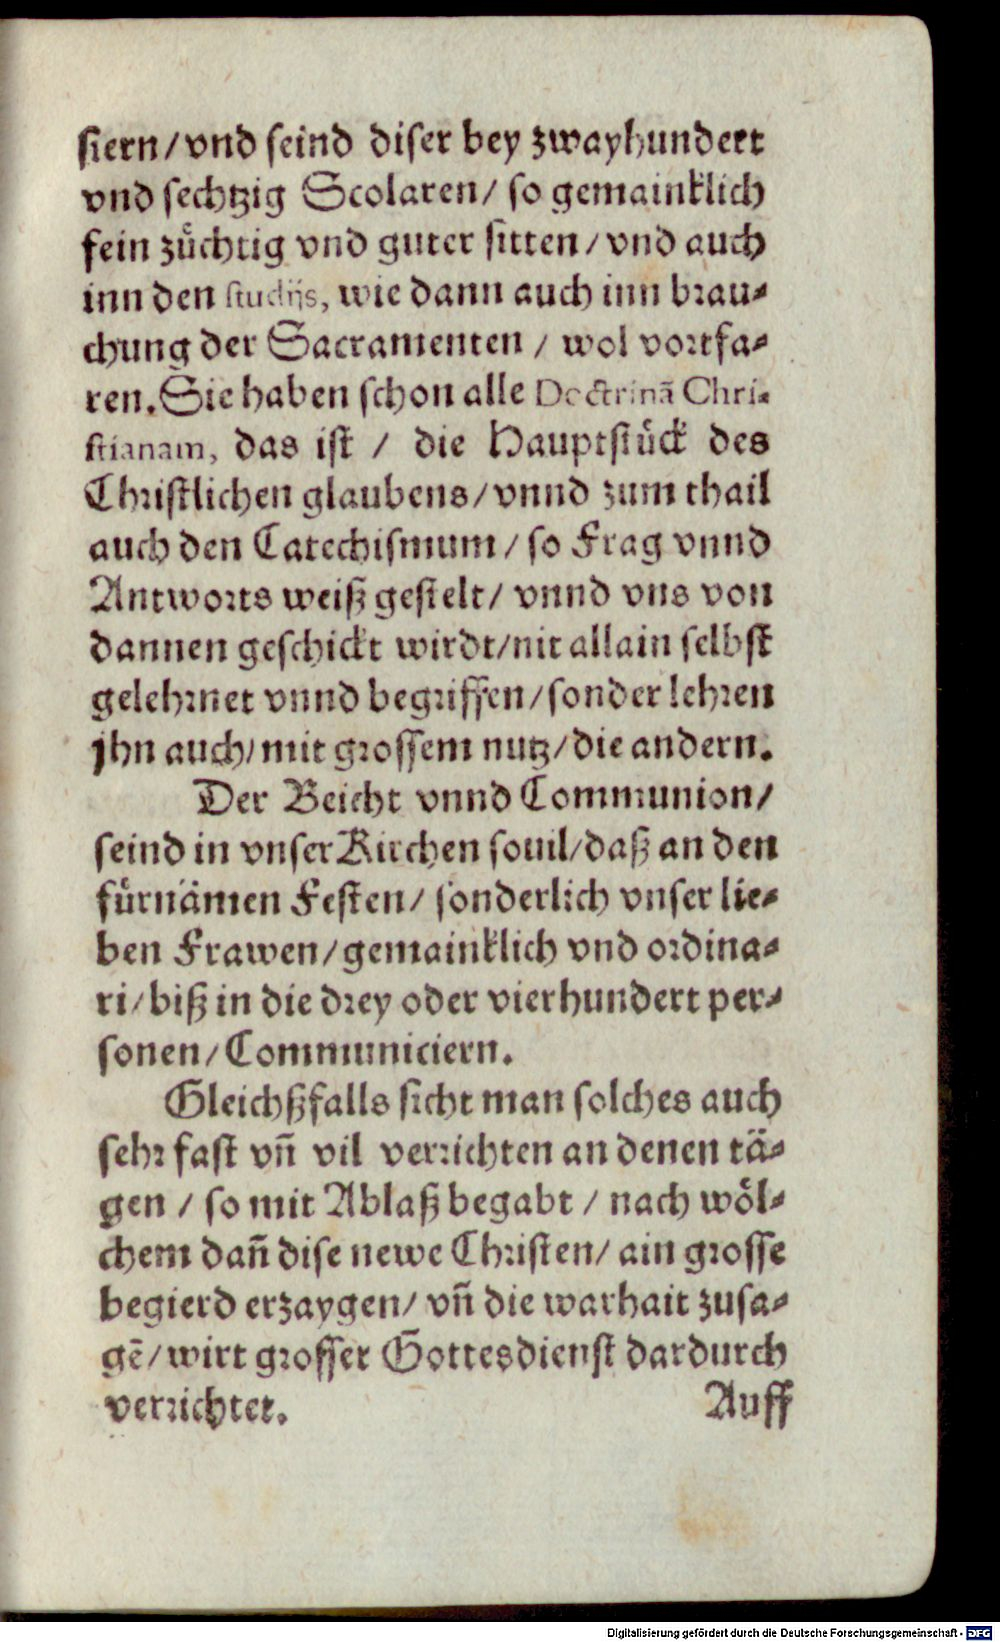 siern/vnd seind diser bey zwayhundert
vnd sechtzig Scolaren/ so gemainklich
fein zůchtig vnd guter sitten/vnd auch
inn den studijs, wie dann auch inn brau-
chung der Sacramenten / wol vortfa-
ren. Sie haben schon alle Doctrinã Chri-
stianam, das ist / die Hauptstůck des
Christlichen glaubens/vnnd zum thail
auch den Catechismum/so Frag vnnd
Antworts weiß gestelt/ vnnd vns von
dannen geschickt wirdt/nit allain selbst
gelehrnet vnnd begriffen/sonder lehren
jhn auch/mit grossem nutz/die andern.
Der Beicht vnnd Communion/
seind in vnser Kirchen souil/daß an den
fůrnämen Festen/ sonderlich vnser lie-
ben Frawen/gemainklich vnd ordina-
ri/biß in die drey oder vierhundert per-
sonen/Communiciern.
Gleichßfalls sicht man solches auch
sehr fast vñ vil verrichten an denen tä-
gen / so mit Ablaß begabt / nach wöl-
chem dañ dise newe Christen/ ain grosse
begierd erzaygen/ vñ die warhait zusa-
gẽ/wirt grosser Gottesdienst dardurch
verrichtet. Auff
Digitalisierung gefördert durch die Deutsche Forschungsgemeinschaft - DFG